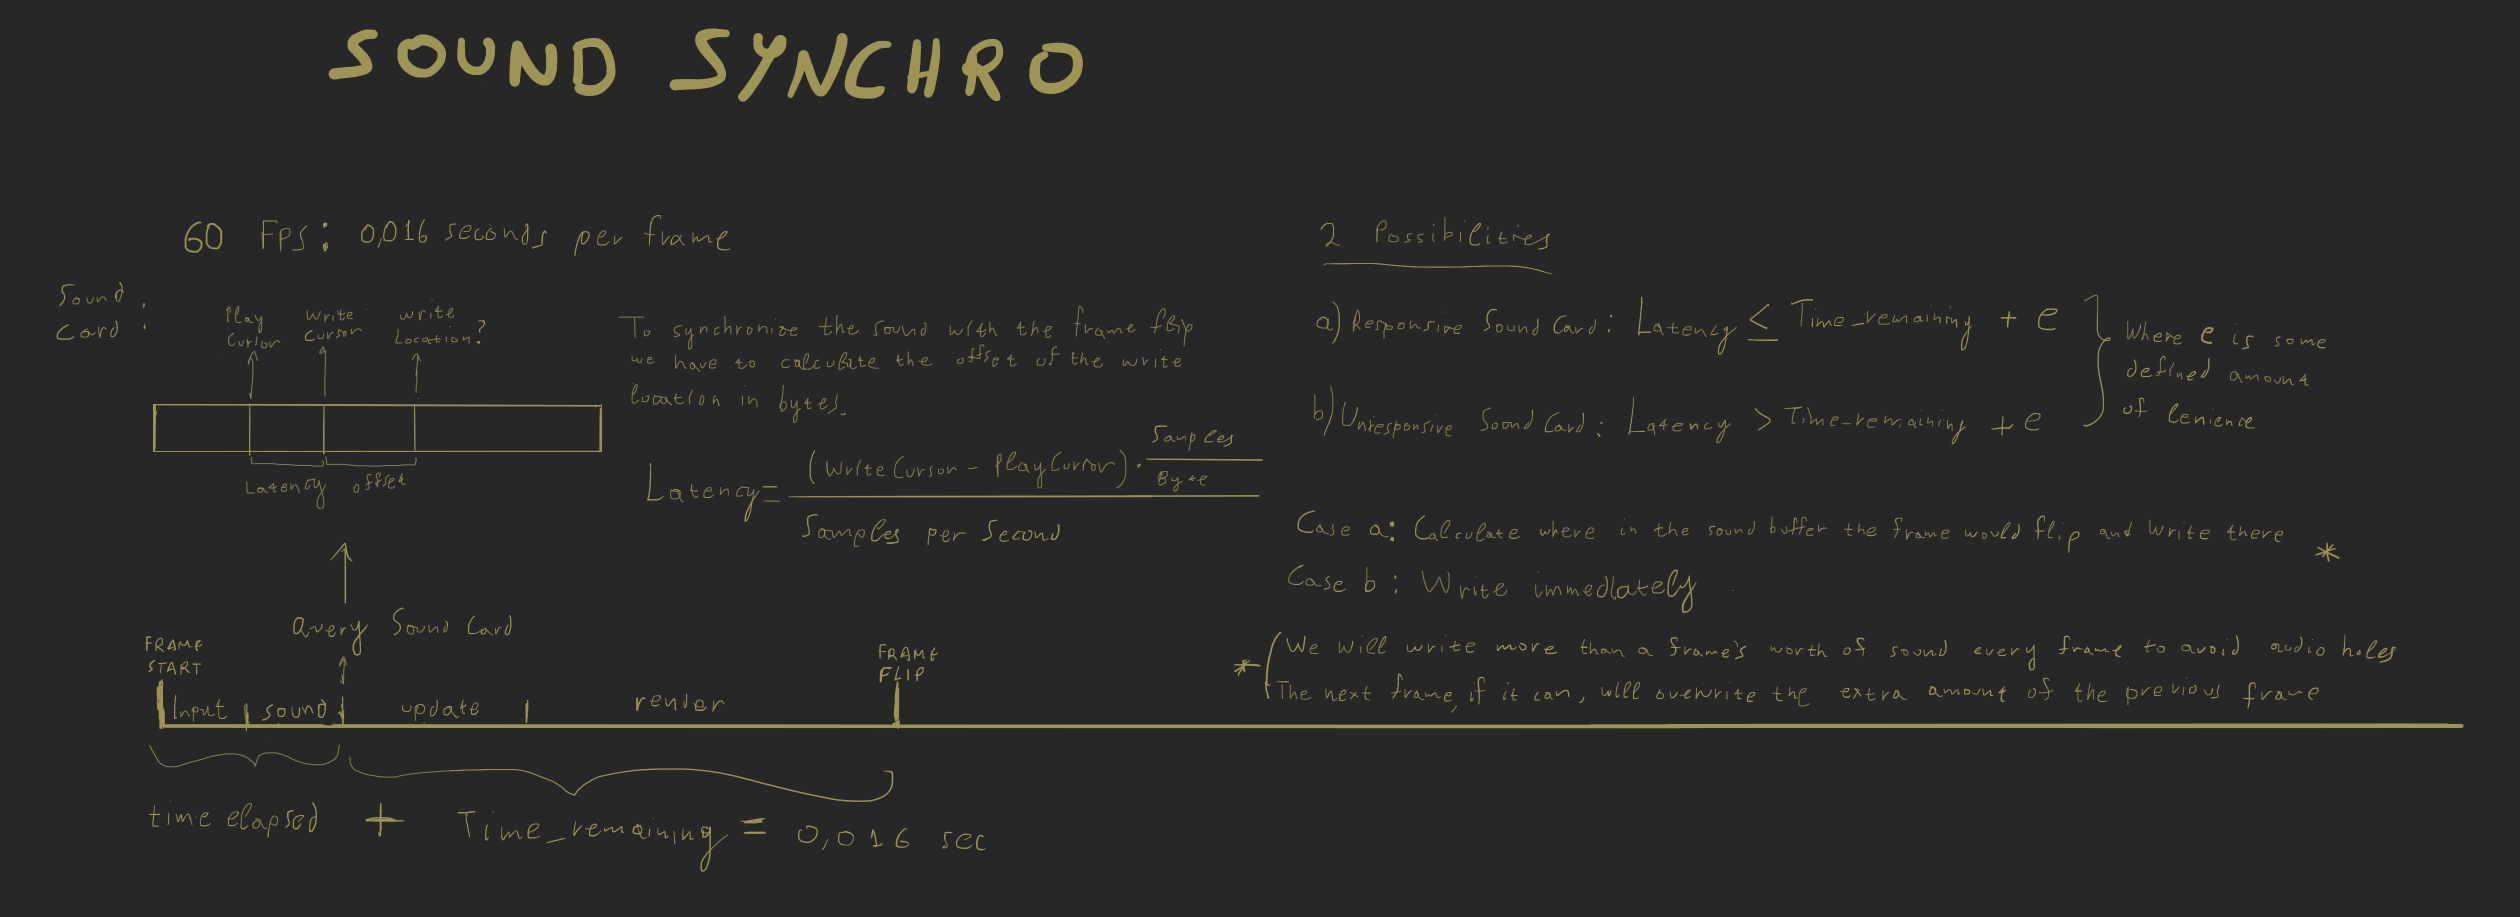 SOUND SYNCHRO
60 FPS: 0,016 seconds per frame
Sound
Card :
Play
Cursor
Write
Cursor
Write
Location?
Latency
offset
To synchronize the sound with the frame flip
we have to calculate the offset of the write
location in bytes.
Latency = (WriteCursor - PlayCursor) · Samples
Byte
Samples per Second
Query Sound Card
FRAME
START
FRAME
FLIP
Input | sound | update | render
time elapsed + Time_remaining = 0,016 sec
2 Possibilities
a) Responsive Sound Card: Latency ≤ Time_remaining + e
b) Unresponsive Sound Card: Latency > Time_remaining + e
Where e is some
defined amount
of lenience
Case a: Calculate where in the sound buffer the frame would flip and write there *
Case b: Write immediately
* We will write more than a frame's worth of sound every frame to avoid audio holes
The next frame, if it can, will overwrite the extra amount of the previous frame